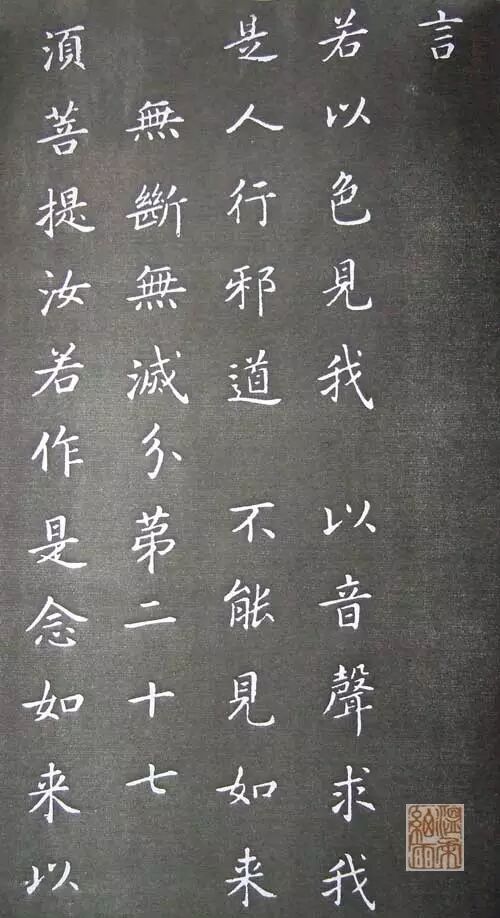 言
若以色見我 以音聲求我
是人行邪道 不能見如来
無斷無滅分第二十七
湏菩提汝若作是念如来以